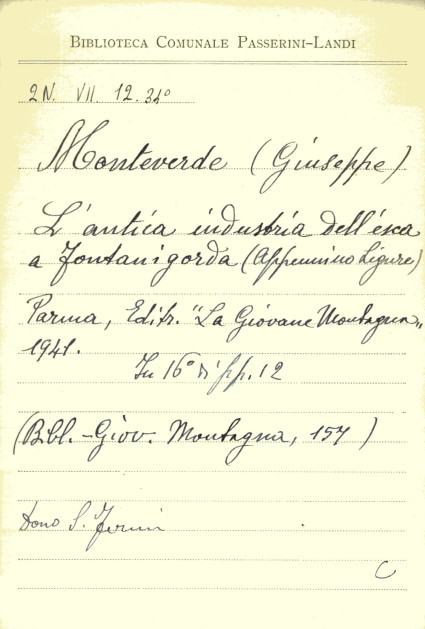 BIBLIOTECA COMUNALE PASSERINI-LANDI
2N. VII. 12. 34º
Monteverde (Giuseppe)
L'antica industria dell'ésca
a Fontanigorda (Appennino Ligure)
Parma, Editr. "La Giovane Montagna"
1941.
In 16º di pp. 12
(Bibl. - Giov. Montagna, 157)
Dono S. Fermi
C